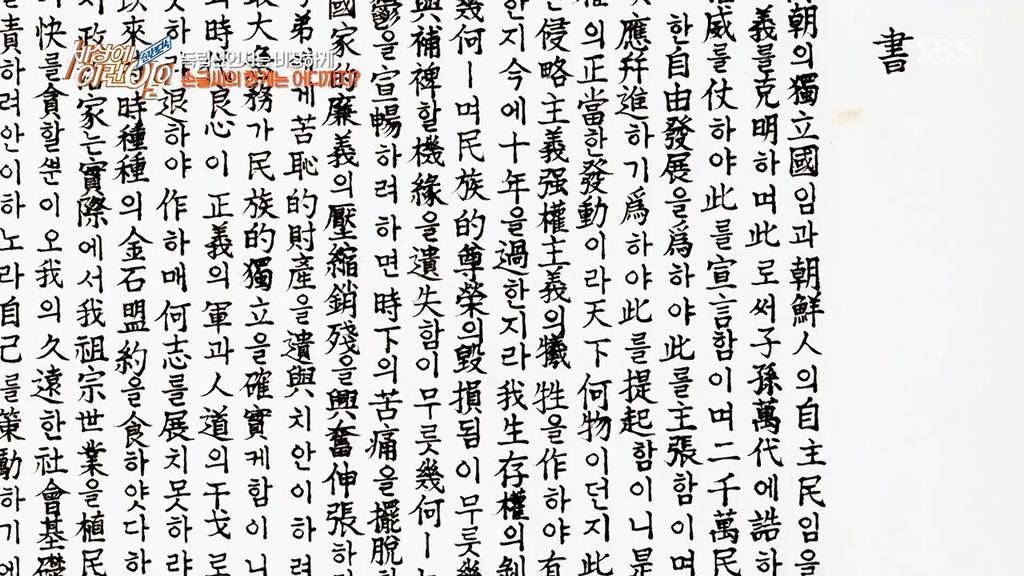 세상에 이런일이
독립선언서는 비장하게
손글씨의 한계는 어디까지?
SBS
書
朝의獨立國임과朝鮮人의自主民임을
義를克明하며此로써子孫萬代에誥하
威를仗하야此를宣言함이며二千萬民
한自由發展을爲하야此를主張함이며
應幷進하기爲하야此를提起함이니是
의正當한發動이라天下何物이던지此
侵略主義强權主義의犧牲을作하야有
한지今에十年을過한지라我生存權의剝
幾何ㅣ며民族的尊榮의毁損됨이무릇幾
與補裨할機緣을遺失함이무릇幾何ㅣ뇨
鬱을宣暢하려하면時下의苦痛을擺脫하
國家的廉義의壓縮銷殘을興奮伸張하
弟에게苦恥的財產을遺與치안이하려
最大急務가民族的獨立을確實케함이니
時良心이正義의軍과人道의干戈로
하랴退하야作하매何志를展치못하랴
以來時種種의金石盟約을食하얏다하
政家는實際에서我祖宗世業을植民
快를貪할뿐이오我의久遠한社會基礎
責하려안이하노라自己를策動하기에